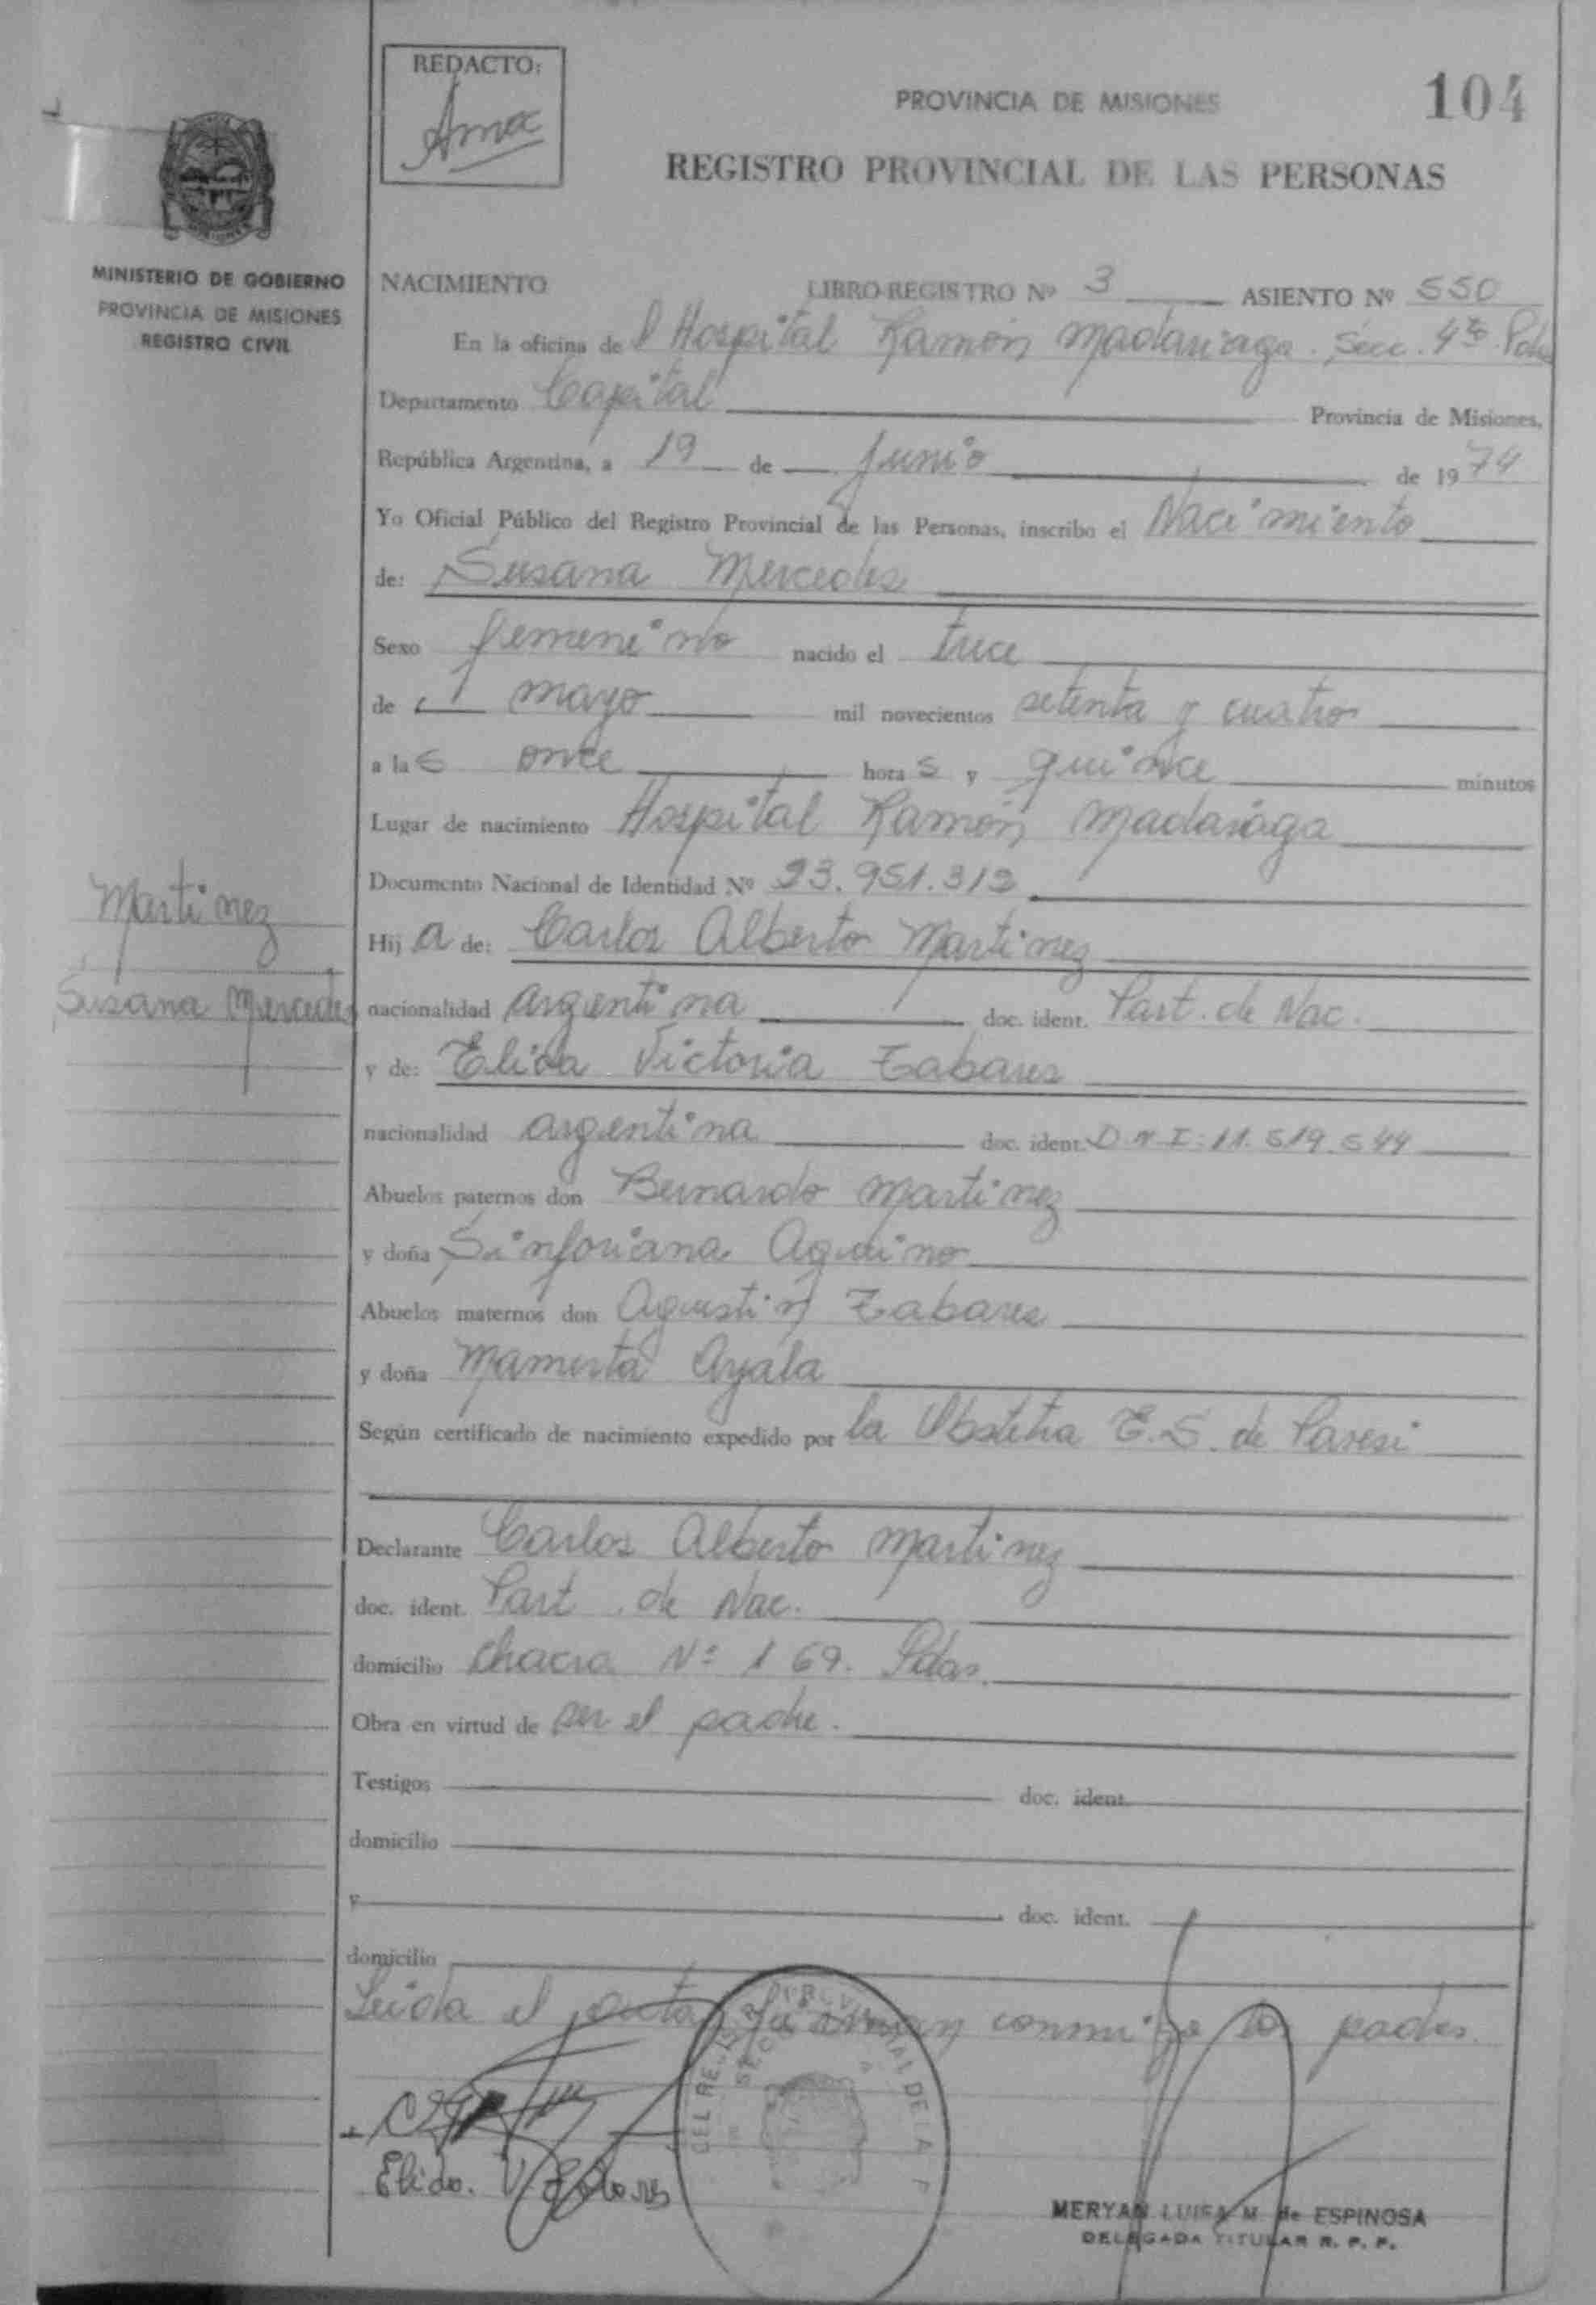 REDACTO:
PROVINCIA DE MISIONES
104
REGISTRO PROVINCIAL DE LAS PERSONAS
MINISTERIO DE GOBIERNO
PROVINCIA DE MISIONES
REGISTRO CIVIL
NACIMIENTO LIBRO-REGISTRO Nº 3 ASIENTO Nº 550
En la oficina de l Hospital Ramón Madariaga. Secc. 4ta
Departamento Capital Provincia de Misiones,
República Argentina, a 19 de Junio de 1974
Yo Oficial Público del Registro Provincial de las Personas, inscribo el Nacimiento
de: Susana Mercedes
Sexo femenino nacido el trece
de mayo mil novecientos setenta y cuatro
a las once horas y quince minutos
Lugar de nacimiento Hospital Ramón Madariaga
Documento Nacional de Identidad Nº 23.951.313
Martinez
Susana Mercedes
Hija de: Carlos Alberto Martinez
nacionalidad argentina doc. ident. Part. de Nac.
y de: Elida Victoria Tabares
nacionalidad argentina doc. ident. D.N.I: 11.519.544
Abuelos paternos don Bernardo Martinez
y doña Sinforiana Aquino
Abuelos maternos don Agustin Tabares
y doña Mamerta Ayala
Según certificado de nacimiento expedido por la Obstetra E.S. de Paresi
Declarante Carlos Alberto Martinez
doc. ident. Part. de Nac.
domicilio chacra Nº 169. Pdas.
Obra en virtud de ser el padre.
Testigos doc. ident.
domicilio
y doc. ident.
domicilio
Leida el acta, firman conmigo los padres.
Elida. V
MERYAN LUISA M. de ESPINOSA
DELEGADA TITULAR R. P. P.